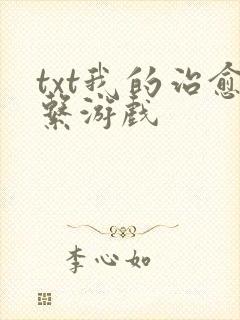 txt我的治愈
系游戏
李心如